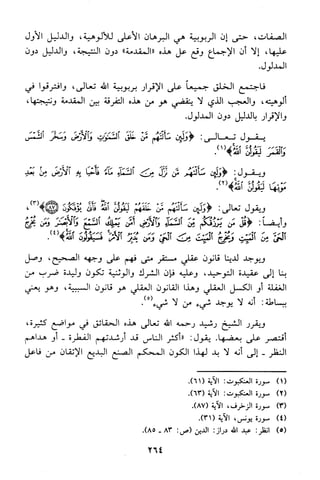 الصفات، حتى إن الربوبية هي البرهان الأعلى للألوهية، والدليل الأول
عليها، إلا أن الإجماع وقع على هذه «المقدمة» دون النتيجة، والدليل دون
المدلول.
فاجتمع الخلق جميعاً على الإقرار بربوبية الله تعالى، وافترقوا في
ألوهيته، والعجب الذي لا ينقضي هو من هذه التفرقة بين المقدمة ونتيجتها،
والإقرار بالدليل دون المدلول.
يقول تعالى: ﴿وَلَئِن سَأَلْتَهُم مَّنْ خَلَقَ السَّمَوَاتِ وَالْأَرْضَ وَسَخَّرَ الشَّمْسَ
وَالْقَمَرَ لَيَقُولُنَّ اللَّهُ﴾(١).
ويقول: ﴿وَلَئِن سَأَلْتَهُم مَّن نَّزَّلَ مِنَ السَّمَاءِ مَاءً فَأَحْيَا بِهِ الْأَرْضَ مِنْ بَعْدِ
مَوْتِهَا لَيَقُولُنَّ اللَّهُ﴾(٢).
ويقول تعالى: ﴿وَلَئِن سَأَلْتَهُم مَّنْ خَلَقَهُمْ لَيَقُولُنَّ اللَّهُ فَأَنَّى يُؤْفَكُونَ ﴿٨٧﴾﴾(٣)،
وأيضاً: ﴿قُلْ مَن يَرْزُقُكُم مِّنَ السَّمَاءِ وَالْأَرْضِ أَمَّن يَمْلِكُ السَّمْعَ وَالْأَبْصَارَ وَمَن يُخْرِجُ
الْحَيَّ مِنَ الْمَيِّتِ وَيُخْرِجُ الْمَيِّتَ مِنَ الْحَيِّ وَمَن يُدَبِّرُ الْأَمْرَ فَسَيَقُولُونَ اللَّهُ﴾(٤).
ويوجد لدينا قانون عقلي مستقر متى فهم على وجهه الصحيح، وصل
بنا إلى عقيدة التوحيد، وعليه فإن الشرك والوثنية تكون وليدة ضرب من
الغفلة أو الكسل العقلي وهذا القانون العقلي هو قانون السببية، وهو يعني
ببساطة: أنه لا يوجد شيء من لا شيء(٥).
ويقرر الشيخ رشيد رحمه الله تعالى هذه الحقائق في مواضع كثيرة،
أقتصر على بعضها. يقول: «أكثر الناس قد أرشدتهم الفطرة ـ أو هداهم
النظر ـ إلى أنه لا بد لهذا الكون المحكم الصنع البديع الإتقان من فاعل
(١) سورة العنكبوت: الآية (٦١).
(٢) سورة العنكبوت: الآية (٦٣).
(٣) سورة الزخرف، الآية (٨٧).
(٤) سورة يونس، الآية (٣١).
(٥) انظر: عبد الله دراز: الدين (ص: ٨٣ ـ ٨٥).
٢٦٤